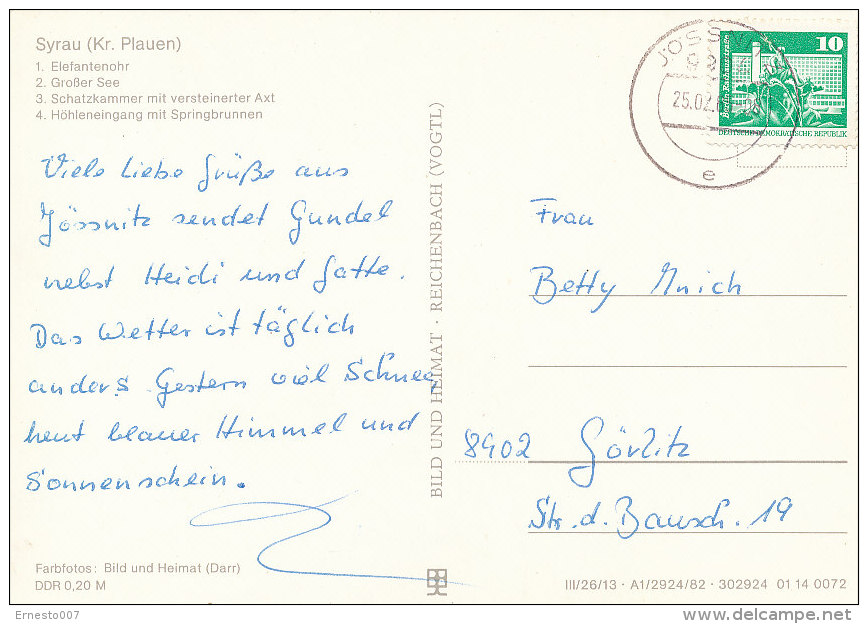 Syrau (Kr. Plauen)
1. Elefantenohr
2. Großer See
3. Schatzkammer mit versteinerter Axt
4. Höhleneingang mit Springbrunnen
Viele liebe Grüße aus
Jössnitz sendet Gundel
nebst Heidi und Gatte.
Das Wetter ist täglich
anders. Gestern viel Schnee,
heut blauer Himmel und
Sonnenschein.
Farbfotos: Bild und Heimat (Darr)
DDR 0,20 M
BILD UND HEIMAT · REICHENBACH (VOGTL)
JÖSSN
25.02.
e
10
Berlin
DEUTSCHE DEMOKRATISCHE REPUBLIK
Frau
Betty Mnich
8902 Görlitz
Str. d. Bausch. 19
III/26/13 · A1/2924/82 · 302924 01 14 0072
Ernesto007
delcampe.net